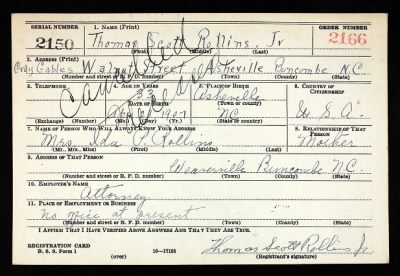 SERIAL NUMBER 1. NAME (Print) ORDER NUMBER
2150 Thomas Scott Rollins, Jr 2166
(First) (Middle) (Last)
2. ADDRESS (Print)
Gables Walnut Street Asheville Buncombe N.C.
(Number and street or R. F. D. number) (Town) (County) (State)
3. TELEPHONE 4. AGE IN YEARS 5. PLACE OF BIRTH 6. COUNTRY OF CITIZENSHIP
Cancelled
33 Asheville
(Town or county)
DATE OF BIRTH
1907 NC U.S.A.
(Exchange) (Number) (Mo.) (Day) (Yr.) (State or country)
7. NAME OF PERSON WHO WILL ALWAYS KNOW YOUR ADDRESS 8. RELATIONSHIP OF THAT PERSON
Mrs. Ida Rollins Mother
(Mr., Mrs., Miss) (First) (Middle) (Last)
9. ADDRESS OF THAT PERSON
Weaverville Buncombe N.C.
(Number and street or R. F. D. number) (Town) (County) (State)
10. EMPLOYER'S NAME
Attorney
11. PLACE OF EMPLOYMENT OR BUSINESS
No office at present
(Number and street or R. F. D. number) (Town) (County) (State)
I AFFIRM THAT I HAVE VERIFIED ABOVE ANSWERS AND THAT THEY ARE TRUE.
REGISTRATION CARD
D. S. S. Form 1 16—17105 Thomas Scott Rollins Jr.
(over) (Registrant's signature)